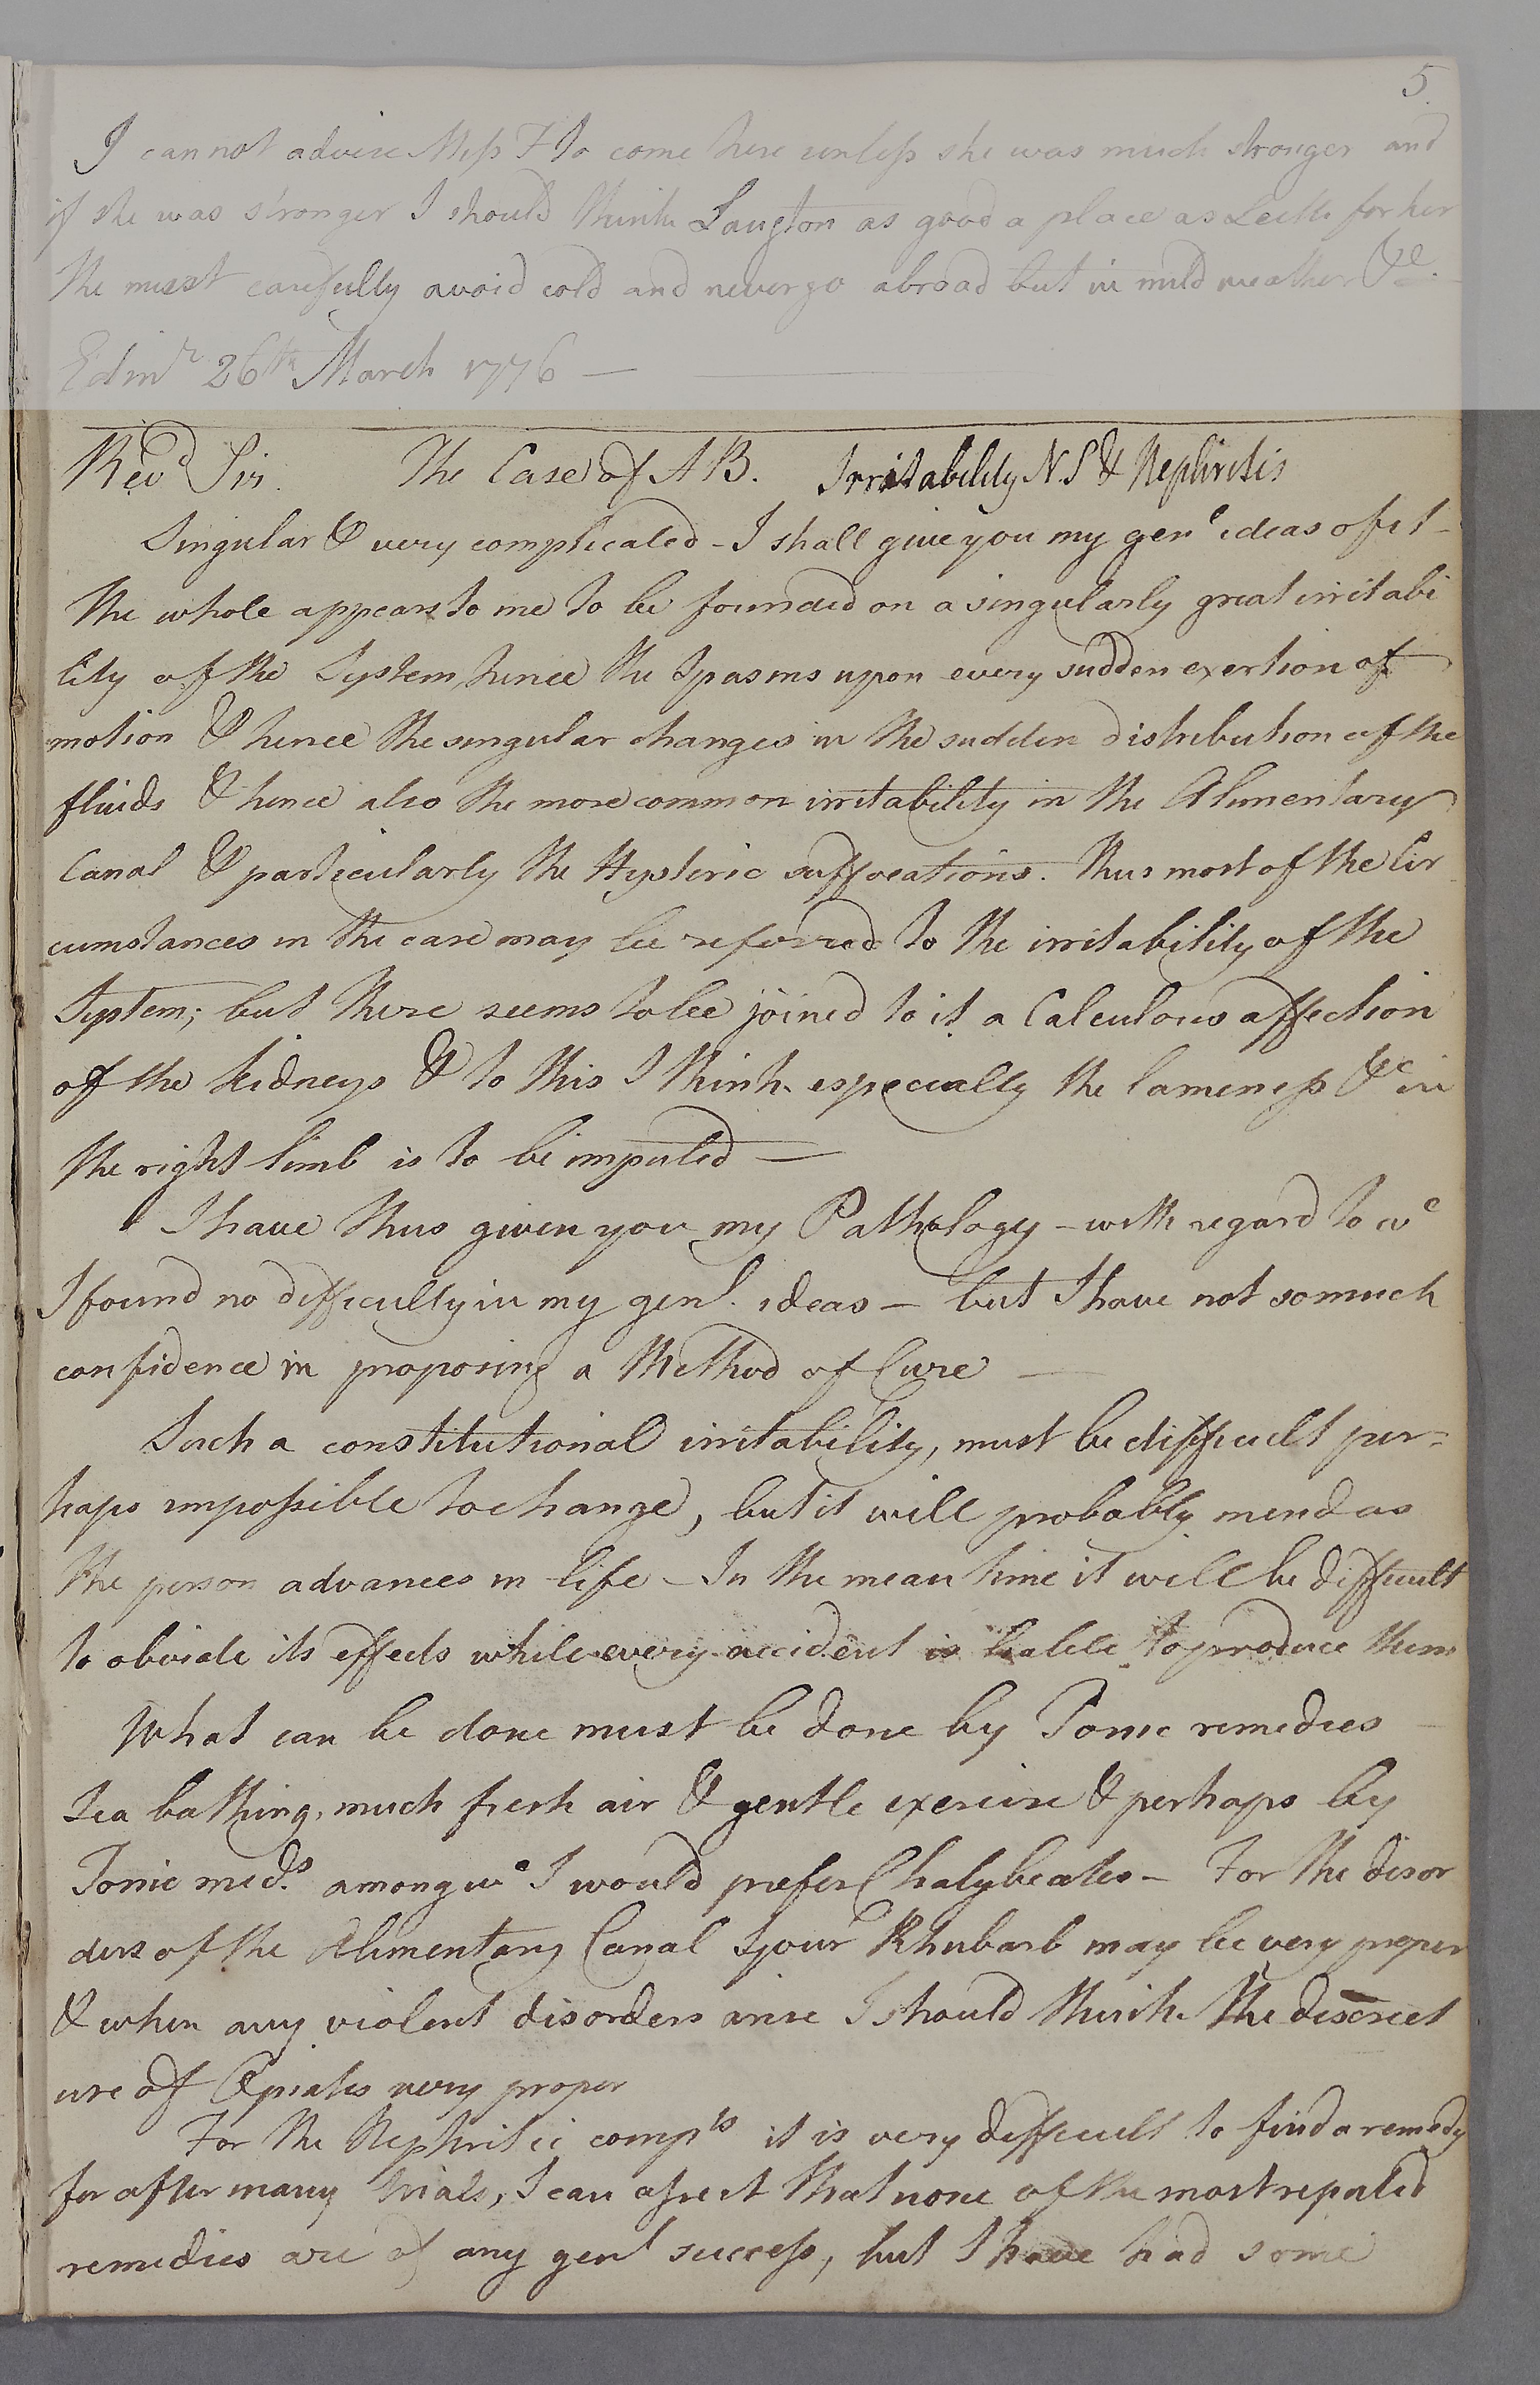 5.
I cannot advise Miss F to come here unless she was much stronger and
if she was stronger I should think Langton as good a place as Leith for her
She must carefully avoid cold and never go abroad but in mild weather &c.
Edinr 26th March 1776 —
Revd Sir. The Case of A B. Irritability N.S & Nephritis
Singular & very complicated - I shall give you my genl ideas of it -
the whole appears to me to be founded on a singularly great irritabi
lity of the System, hence the Spasms upon every sudden exertion of
motion & hence the singular changes in the sudden distribution of the
fluids & hence also the more common irritability in the Alimentary
Canal & particularly the Hysteric suffocations. Thus most of the Cir
cumstances in the case may be referred to the irritability of the
System; but there seems to be joined to it a Calculous affection
of the kidneys & to this I think especially the lameness &c in
the right limb is to be imputed —
I have thus given you my Pathology - with regard to wc
I found no difficulty in my genl. ideas — but I have not so much
confidence in proposing a Method of Cure —
Such a constitutional irritability, must be difficult per=
haps impossible to change, but it will probably mend as
the person advances in life - In the mean time it will be difficult
to obviate its effects while every accident is liable to produce them
What can be done must be done by Tonic remedies -
Sea bathing, much fresh air & gentle exercise & perhaps by
Tonic meds. among wc I would prefer Chalybeates - For the disor
ders of the Alimentary Canal your Rhubarb may be very proper
& when any violent disorders arise I should think the discreet
use of Opiates very proper
For the Nephritic compts it is very difficult to find a remedy
for after many trials, I can assert that none of the most reputed
remedies are of any genl success, but I have had some